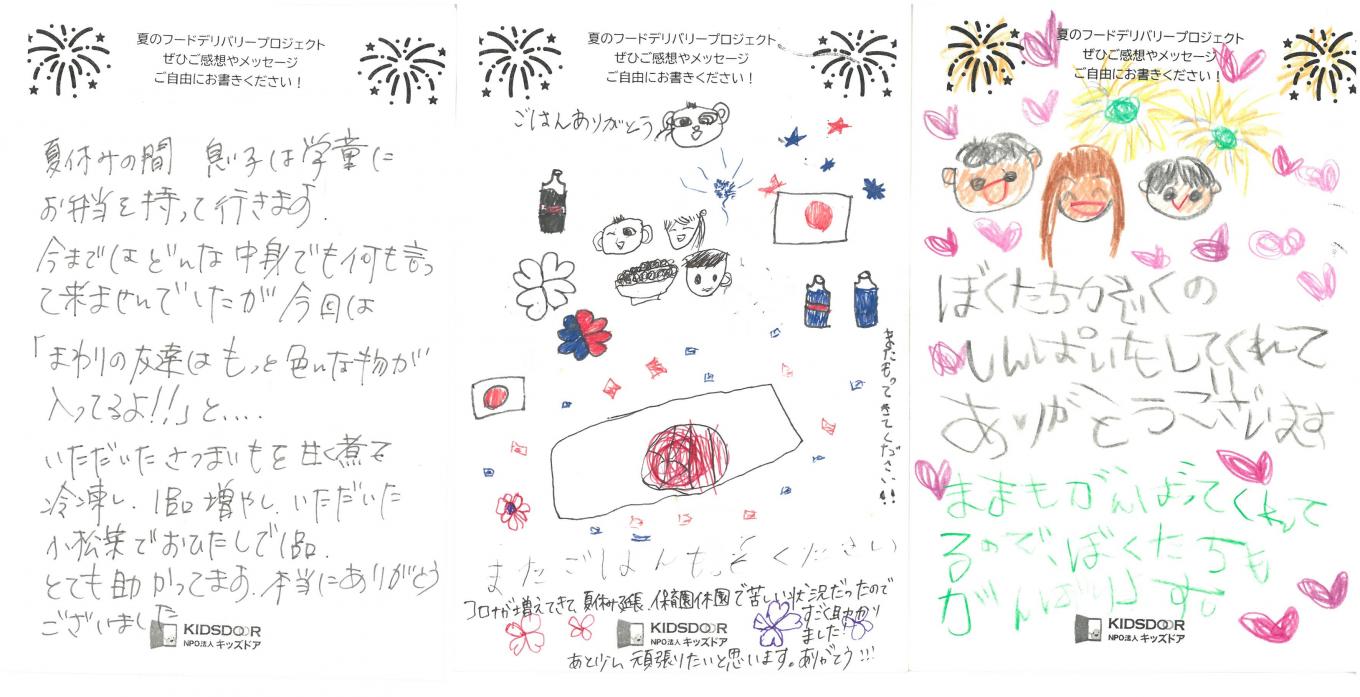 夏のフードデリバリープロジェクト
ぜひご感想やメッセージ
ご自由にお書きください！
夏休みの間 息子は学童に
お弁当を持って行きます.
今まではどんな中身でも何も言っ
て来ませんでしたが 今回は
「まわりの友達はもっと色んな物が
入ってるよ!!」と....
いただいたさつまいもを甘く煮て
冷凍し. 1品増やし. いただいた
小松菜でおひたしで1品.
とても助かってます. 本当にありがとう
ございました
KIDSDOOR
NPO法人 キッズドア
夏のフードデリバリープロジェクト
ぜひご感想やメッセージ
ご自由にお書きください！
ごはんありがとう
またもってきてください!!
またごはんもってください
コロナが増えてきて、夏休み延長、保育園休園で苦しい状況だったので
すごく助かり
ました!
KIDSDOOR
NPO法人 キッズドア
あと少し頑張りたいと思います。ありがとう!!!
夏のフードデリバリープロジェクト
ぜひご感想やメッセージ
ご自由にお書きください！
ぼくたちかぞくの
しんぱいをしてくれて
ありがとうございます
ままもがんばってくれて
るので、ぼくたちも
がんばります。
KIDSDOOR
NPO法人 キッズドア